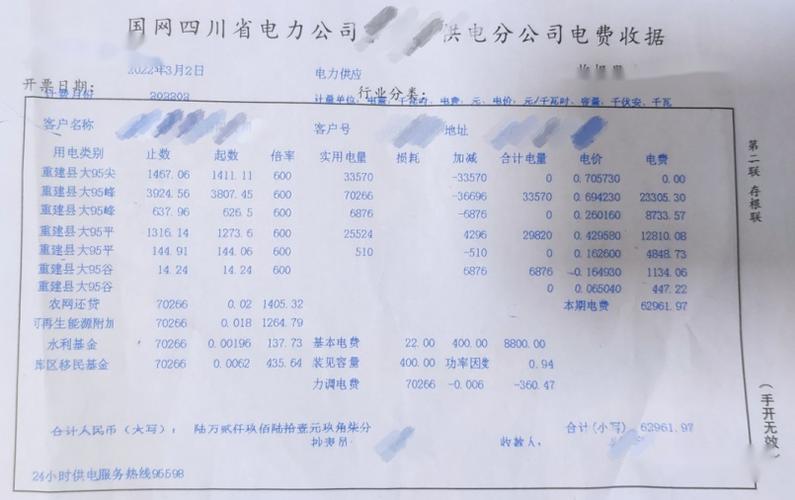 国网四川省电力公司 供电分公司电费收据
开票日期: 2022年3月2日 电力供应
行业分类:
计费月份 202203 计量单位: 电量: 千瓦时、电费: 元、电价: 元/千瓦时、容量: 千伏安、千瓦
客户名称 客户号 地址
用电类别 止数 起数 倍率 实用电量 损耗 加减 合计电量 电价 电费
重建县大95尖 1467.06 1411.11 600 33570 -33570 0 0.705730 0.00
重建县大95峰 3924.56 3807.45 600 70266 -36696 33570 0.694230 23305.30
重建县大95峰 637.96 626.5 600 6876 -6876 0 0.260160 8733.57
重建县大95平 1316.14 1273.6 600 25524 4296 29820 0.429580 12810.08
重建县大95平 144.91 144.06 600 510 -510 0 0.162600 4848.73
重建县大95谷 14.24 14.24 600 6876 6876 -0.164930 1134.06
重建县大95谷 0 0.065040 447.22
农网还贷 70266 0.02 1405.32 本期电费 62961.97
可再生能源附加 70266 0.018 1264.79
水利基金 70266 0.00196 137.73 基本电费 22.00 400.00 8800.00
库区移民基金 70266 0.0062 435.64 装见容量 400.00 功率因数 0.94
力调电费 70266 -0.006 -360.47
合计人民币(大写): 陆万贰仟玖佰陆拾壹元玖角柒分 合计(小写) 62961.97
抄表员 收款人:
24小时供电服务热线95598
第二联 存根联
(手开无效)